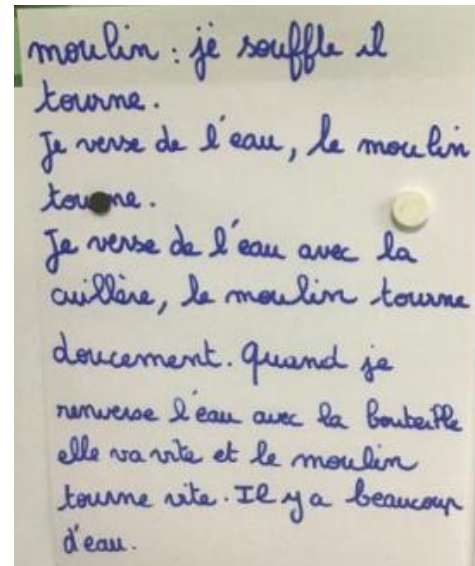 moulin : je souffle il
tourne.
Je verse de l'eau, le moulin
tourne.
Je verse de l'eau avec la
cuillère, le moulin tourne
doucement. Quand je
renverse l'eau avec la bouteille
elle va vite et le moulin
tourne vite. Il y a beaucoup
d'eau.